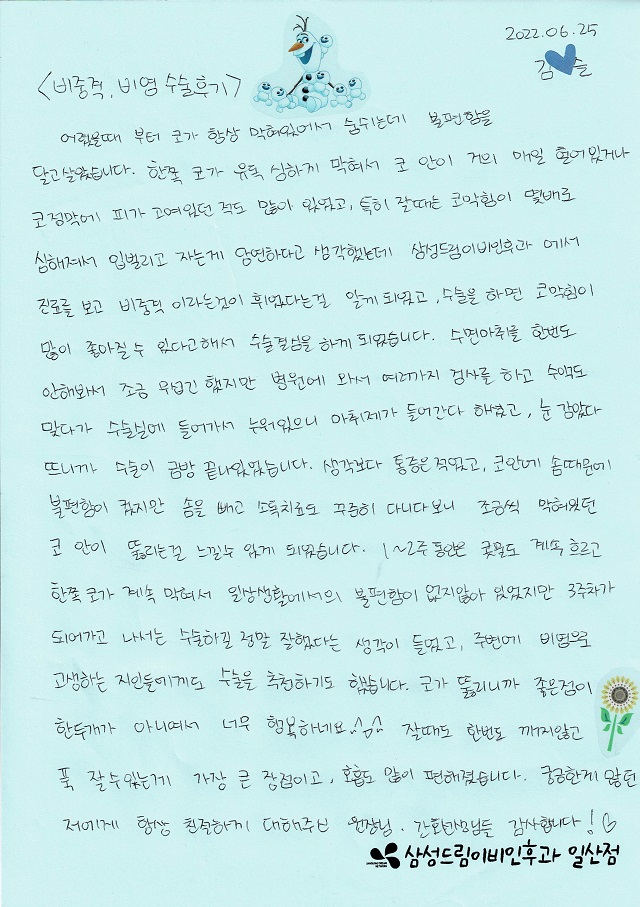 2022.06.25
김 슬
<비중격, 비염 수술후기>
어렸을때 부터 코가 항상 막혀있어서 숨쉬는데 불편함을
달고살았습니다. 한쪽 코가 유독 심하게 막혀서 코 안이 거의 매일 헐어있거나
코점막에 피가 고여있던 적도 많이 있었고, 특히 잘때는 코막힘이 몇배로
심해져서 입벌리고 자는게 당연하다고 생각했는데 삼성드림이비인후과 에서
진료를 보고 비중격 이라는것이 휘었다는걸 알게 되었고, 수술을 하면 코막힘이
많이 좋아질 수 있다고해서 수술결심을 하게 되었습니다. 수면마취를 한번도
안해봐서 조금 무섭긴 했지만 병원에 와서 여러가지 검사를 하고 수액도
맞다가 수술실에 들어가서 누워있으니 마취제가 들어간다 하셨고, 눈 감았다
뜨니까 수술이 금방 끝나있었습니다. 생각보다 통증은 적었고, 코안에 솜때문에
불편함이 컸지만 솜을 빼고 소독치료도 꾸준히 다니다보니 조금씩 막혀있던
코 안이 뚫리는걸 느낄수 있게 되었습니다. 1~2주 동안은 콧물도 계속 흐르고
한쪽 코가 계속 막혀서 일상생활에서의 불편함이 없지않아 있었지만 3주차가
되어가고 나서는 수술하길 정말 잘했다는 생각이 들었고, 주변에 비염으로
고생하는 지인들에게도 수술을 추천하기도 했습니다. 코가 뚫리니까 좋은점이
한두개가 아니여서 너무 행복하네요^^ 잘때도 한번도 깨지않고
푹 잘수있는게 가장 큰 장점이고, 호흡도 많이 편해졌습니다. 궁금한게 많던
저에게 항상 친절하게 대해주신 원장님, 간호선생님들 감사합니다!♡
삼성드림이비인후과 일산점